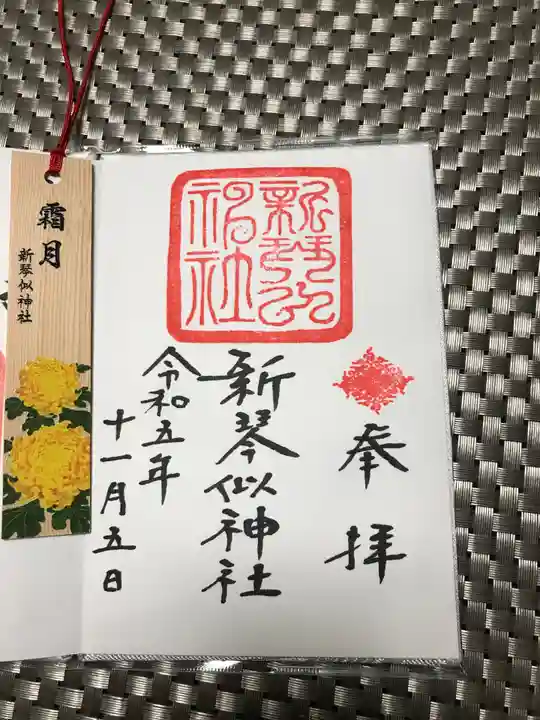 奉拝
新琴似神社
令和五年
十一月五日
新琴似
神社
霜月
新琴似神社